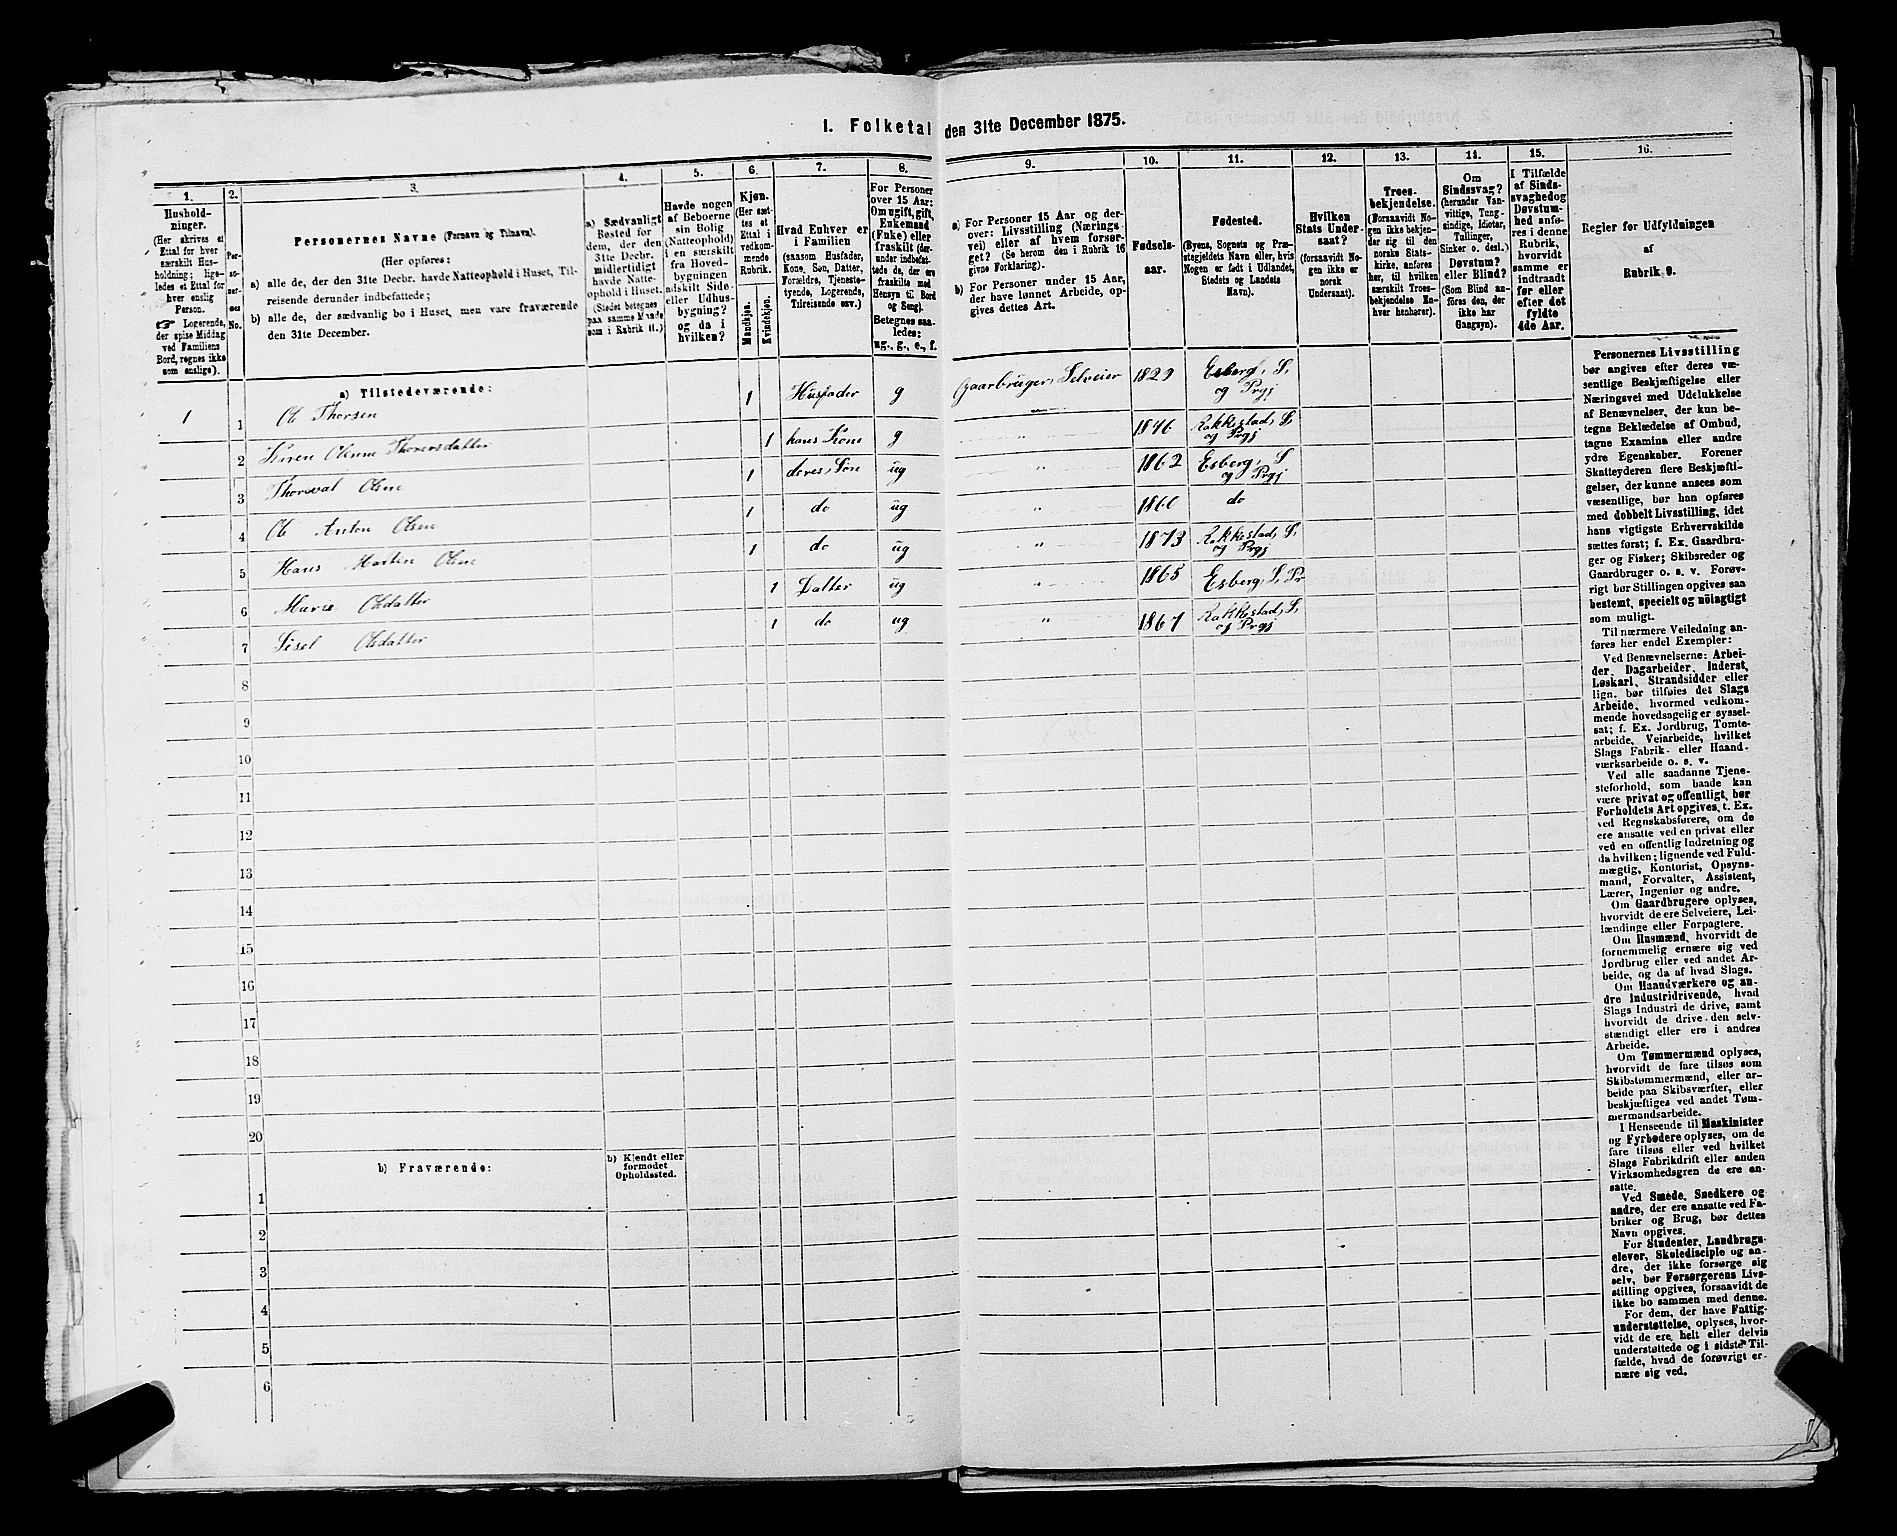 I. Folketal den 31te December 1875.
1.
2.
3.
4.
5.
6.
7.
8.
9.
10.
11.
12.
13.
14.
15.
16.
Hushold-
ninger.
(Her skrives et
Ettal for hver
særskilt Hus-
holdning; lige-
ledes et Ettal for
hver enslig
Person.
☞ Logerende,
der spise Middag
ved Familiens
Bord, regnes ikke
som enslige).
Per-
so-
ner-
nes
No.
Personernes Navne (Fornavn og Tilnavn).
(Her opføres:
a) alle de, der den 31te Decbr. havde Natteophold i Huset, Til-
reisende derunder indbefattede;
b) alle de, der sædvanlig bo i Huset, men vare fraværende
den 31te December.
a) Sædvanligt
Bosted for
dem, der den
31te Decbr.
midlertidigt
havde Natte-
ophold i Huset.
(Stedet betegnes
paa samme Maade
som i Rubrik 11.)
Havde nogen
af Beboerne
sin Bolig
(Natteophold)
i en særskilt
fra Hoved-
bygningen
adskilt Side-
eller Udhus-
bygning?
og da i
hvilken?
Kjøn.
(Her sæt-
tes et
Ettal i
vedkom-
mende
Rubrik.
Mandkjøn.
Kvindekjøn.
Hvad Enhver er
i Familien
(saasom Husfader,
Kone, Søn, Datter,
Forældre, Tjeneste-
tyende, Logerende,
Tilreisende osv.)
For Personer
over 15 Aar:
Om ugift, gift,
Enkemand
(Enke) eller
fraskilt (der-
under indbefat-
tede de, der ere
fraskilte med
Hensyn til Bord
og Seng).
Betegnes saa-
ledes:
ug., g., e., f.
a) For Personer 15 Aar og der-
over: Livsstilling (Nærings-
vei) eller af hvem forsør-
get? (Se herom den i Rubrik 16
givne Forklaring).
b) For Personer under 15 Aar,
der have lønnet Arbeide, op-
gives dettes Art.
Fødsels-
aar.
Fødested.
(Byens, Sognets og Præ-
stegjeldets Navn eller, hvis
Nogen er født i Udlandet,
Stedets og Landets
Navn).
Hvilken
Stats Under-
saat?
(forsaavidt No-
gen ikke er
norsk
Undersaat).
Troes-
bekjendelse.
(Forsaavidt No-
gen ikke bekjen-
der sig til den
norske Stats-
kirke, anføres
her, til hvilken
særskilt Troes-
bekjendelse En-
hver henhører).
Om
Sindssvag?
(herunder Van-
vittige, Tung-
sindige, Idioter,
Tullinger,
Sinker o. desl.)
Døvstum?
eller Blind?
(Som Blind an-
føres den, der
ikke har
Gangsyn).
I Tilfælde
af Sinds-
svaghedog
Døvstum-
hed anfø-
res i denne
Rubrik,
hvorvidt
samme er
indtraadt
før eller
efter det
fyldte
4de Aar.
Regler for Udfyldningen
af
Rubrik 9.
a) Tilstedeværende:
1 1 Ole Thorsen 1 Husfader g Gaarbruger, Selveier 1829 Esberg, S,
og Prgj
2 Karen Olenne Thorersdatter 1 hans Kone g " 1846 Rakkestad, S,
og Prgj
3 Thorval Olsen 1 deres Søn ug " 1862 Esberg, S
og Prgj
4 Ole Anton Olsen 1 do ug " 1860 do
5 Hans Marten Olsen 1 do ug " 1873 Rakkestad, S,
og Prgj
6 Marie Olsdatter 1 Datter ug " 1865 Esberg, S, Pr
7 Sisel Olsdatter 1 do ug " 1867 Rakkestad, S,
og Prgj
8
9
10
11
12
13
14
15
16
17
18
19
20
b) Fraværende:
b) Kjendt eller
formodet
Opholdssted.
1
2
3
4
5
6
Personernes Livsstilling
bør angives efter deres væ-
sentlige Beskjæftigelse eller
Næringsvei med Udelukkelse
af Benævnelser, der kun be-
tegne Beklædelse af Ombud,
tagne Examina eller andre
ydre Egenskaber. Forener
Skatteyderen flere Beskjæfti-
gelser, der kunne ansees som
væsentlige, bør han opføres
med dobbelt Livsstilling, idet
hans vigtigste Erhvervskilde
sættes først; f. Ex. Gaardbru-
ger og Fisker; Skibsreder og
Gaardbruger o. s. v. Forøv-
rigt bør Stillingen opgives saa
bestemt, specielt og nöiagtigt
som muligt.
Til nærmere Veiledning an-
føres her endel Exempler:
Ved Benævnelserne: Arbei-
der, Dagarbeider, Inderst,
Løskarl, Strandsidder eller
lign. bør tilføies det Slags
Arbeide, hvormed vedkom-
mende hovedsagelig er syssel-
sat; f. Ex. Jordbrug, Tomte-
arbeide, Veiarbeide, hvilket
Slags Fabrik- eller Haand-
værksarbeide o. s. v.
Ved alle saadanne Tjene-
steforhold, som baade kan
være privat og offentligt, bør
Forholdets Art opgives, t. Ex.
ved Regnskabsførere, om de
ere ansatte ved en privat eller
ved en offentlig Indretning og
da hvilken; lignende ved Fuld-
mægtig, Kontorist, Opsyns-
mand, Forvalter, Assistent,
Lærer, Ingeniør og andre.
Om Gaardbrugere oplyses,
hvorvidt de ere Selveiere, Lei-
lændinge eller Forpagtere.
Om Husmænd, hvorvidt de
fornemmelig ernære sig ved
Jordbrug eller ved andet Ar-
beide, og da af hvad Slags.
Om Haandværkere og an-
dre Industridrivende, hvad
Slags Industri de drive, samt
hvorvidt de drive den selv-
stændigt eller ere i andres
Arbeide.
Om Tømmermænd oplyses,
hvorvidt de fare tilsøs som
Skibstømmermænd, eller ar-
beide paa Skibsværfter, eller
beskjæftiges ved andet Tøm-
mermandsarbeide.
I Henseende til Maskinister
og Fyrbødere oplyses, om de
fare tilsøs eller ved hvilket
Slags Fabrikdrift eller anden
Virksomhedsgren de ere an-
satte.
Ved Smede, Snedkere og
andre, der ere ansatte ved Fa-
briker og Brug, bør dettes
Navn opgives.
For Studenter, Landbrugs-
elever, Skoledisciple og an-
dre, der ikke forsørge sig
selv, bør Forsørgerens Livs-
stilling opgives, forsaavidt de
ikke bo sammen med denne.
For dem, der have Fattig-
understøttelse, oplyses, hvor-
vidt de ere helt eller delvis
understøttede og i sidste Til-
fælde, hvad de forøvrigt er-
nære sig ved.